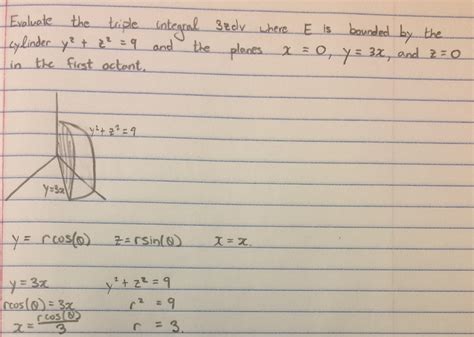 Evaluate the triple integral 3zdv where E is bounded by the
cylinder y² + z² = 9 and the planes x = 0, y = 3x, and z = 0
in the first octent.
y²+z²=9
y=3x
y = rcos(θ) z = rsin(θ) x = x.
y = 3x y² + z² = 9
rcos(θ) = 3x r² = 9
x = rcos(θ)/3 r = 3.